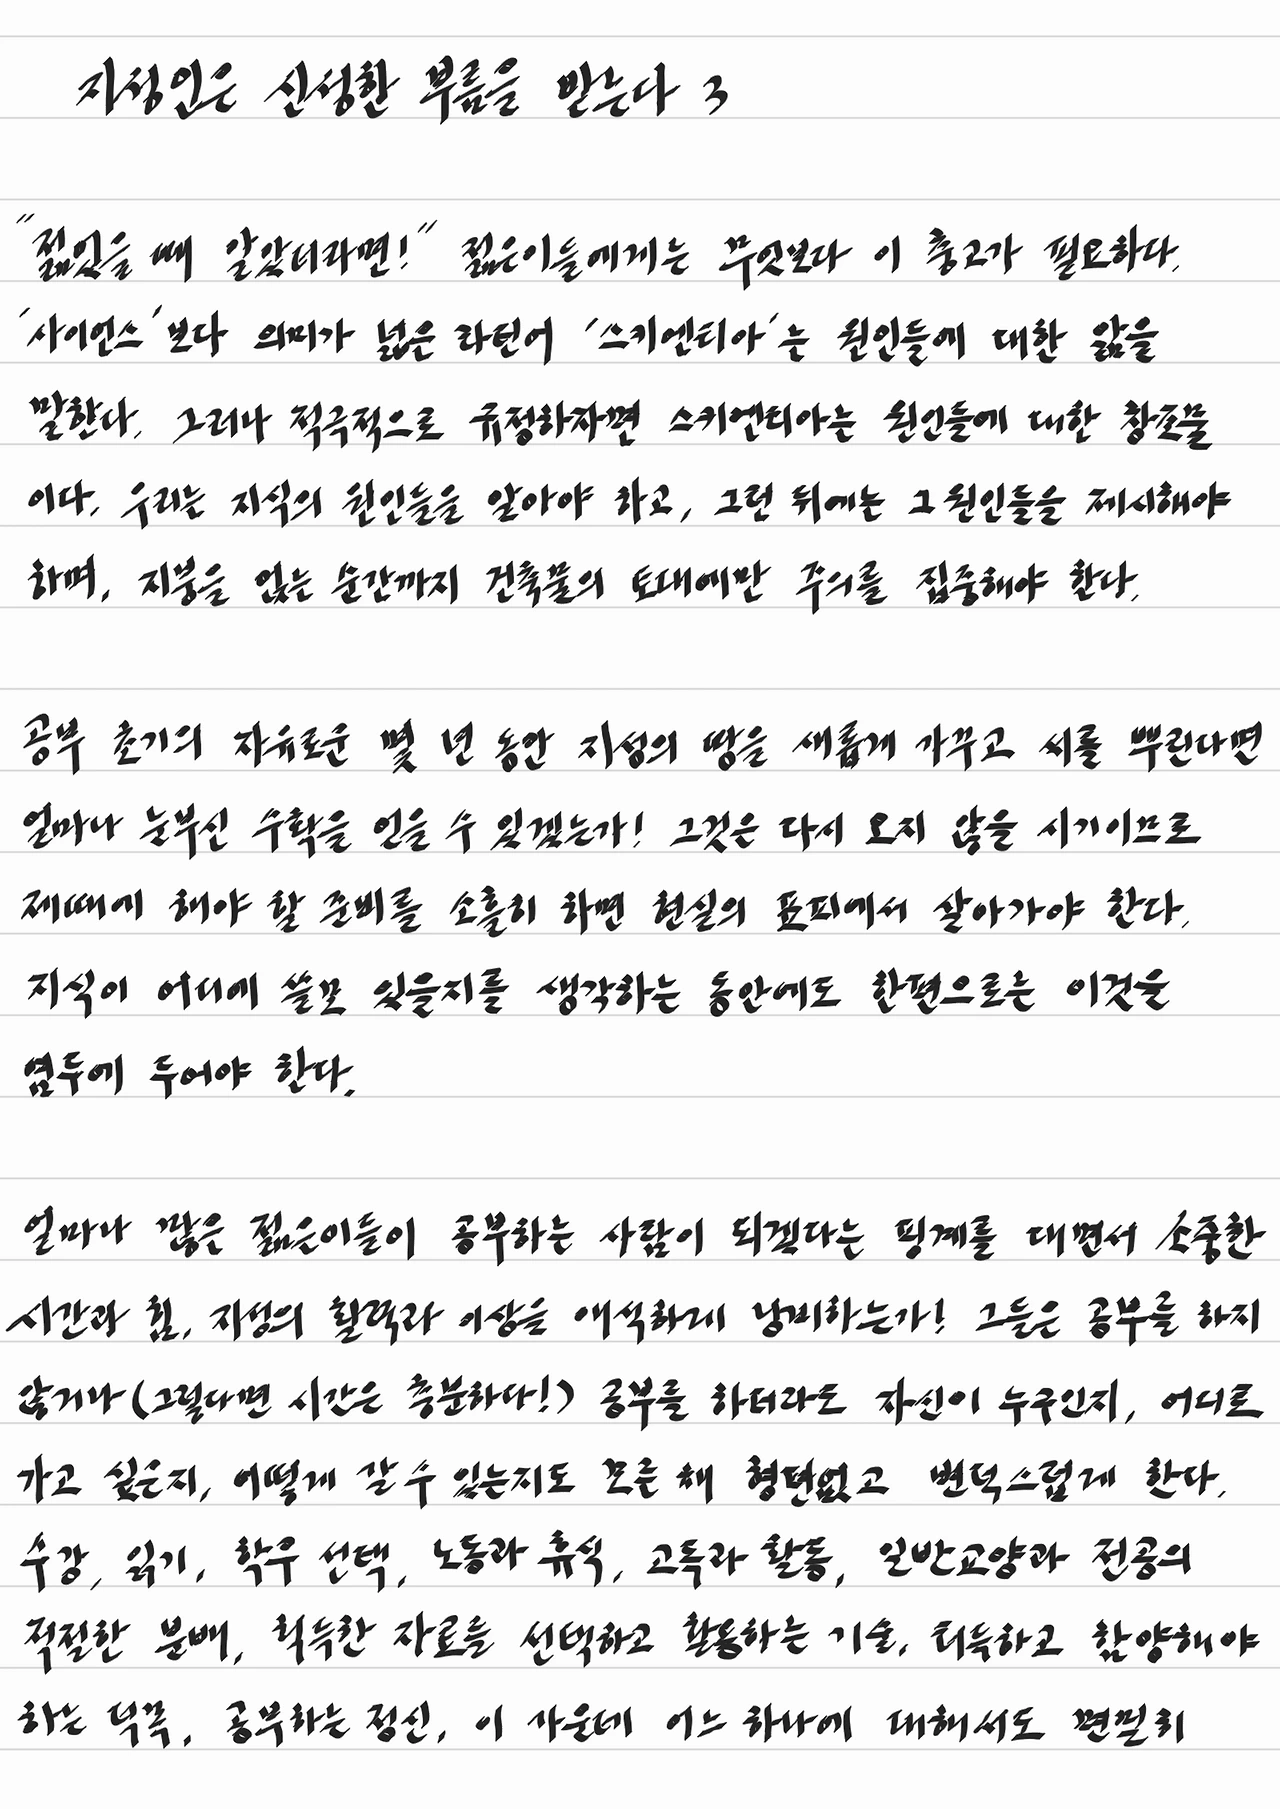 지성인은 신성한 부름을 받는다 3
"젊었을 때 알았더라면!" 젊은이들에게는 무엇보다 이 충고가 필요하다.
'사이언스'보다 의미가 넓은 라틴어 '스키엔티아'는 원인들에 대한 앎을
말한다. 그러나 적극적으로 규정하자면 스키엔티아는 원인들에 대한 창조물
이다. 우리는 지식의 원인들을 알아야 하고, 그런 뒤에는 그 원인들을 제시해야
하며, 지붕을 얹는 순간까지 건축물의 토대에만 주의를 집중해야 한다.
공부 초기의 자유로운 몇 년 동안 지성의 땅을 새롭게 가꾸고 씨를 뿌린다면
얼마나 눈부신 수확을 얻을 수 있겠는가! 그것은 다시 오지 않을 시기이므로
제때에 해야 할 준비를 소홀히 하면 현실의 표피에서 살아가야 한다.
지식이 어디에 쓸모 있을지를 생각하는 동안에도 한편으로는 이것을
염두에 두어야 한다.
얼마나 많은 젊은이들이 공부하는 사람이 되겠다는 핑계를 대면서 소중한
시간과 힘, 지성의 활력과 이상을 애석하게 낭비하는가! 그들은 공부를 하지
않거나(그럴다면 시간은 충분하다!) 공부를 하더라도 자신이 누구인지, 어디로
가고 싶은지, 어떻게 갈 수 있는지도 모른 채 형편없고 변덕스럽게 한다.
수강, 읽기, 학우 선택, 노동과 휴식, 고독과 활동, 일반교양과 전공의
적절한 분배, 획득한 자료를 선택하고 활용하는 기술, 터득하고 함양해야
하는 덕목, 공부하는 정신, 이 가운데 어느 하나에 대해서도 면밀히